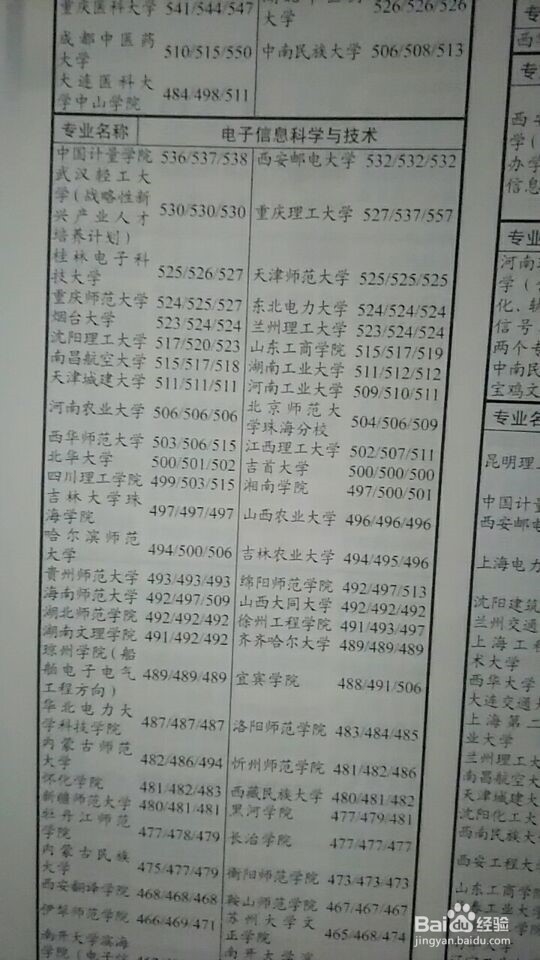 重庆医科大学 541/544/547
526/526/526
大学
成都中医药
大学 510/515/550
中南民族大学 506/508/513
大连医科大
学中山学院 484/498/511
专业名称 电子信息科学与技术
中国计量学院 536/537/538 西安邮电大学 532/532/532
武汉轻工大
学(战略性新
兴产业人才
培养计划) 530/530/530 重庆理工大学 527/537/557
桂林电子科
技大学 525/526/527 天津师范大学 525/525/525
重庆师范大学 524/525/527 东北电力大学 524/524/524
烟台大学 523/524/524 兰州理工大学 523/524/524
沈阳理工大学 517/520/523 山东工商学院 515/517/519
南昌航空大学 515/517/518 湖南工业大学 511/512/512
天津城建大学 511/511/511 河南工业大学 509/510/511
河南农业大学 506/506/506 北京师范大
学珠海分校 504/506/509
西华师范大学 503/506/515 江西理工大学 502/507/511
北华大学 500/501/502 吉首大学 500/500/500
四川理工学院 499/503/515 湘南学院 497/500/501
吉林大学珠
海学院 497/497/497 山西农业大学 496/496/496
哈尔滨师范
大学 494/500/506 吉林农业大学 494/495/496
贵州师范大学 493/493/493 绵阳师范学院 492/497/513
海南师范大学 492/497/509 山西大同大学 492/492/492
湖北师范学院 492/492/492 徐州工程学院 491/493/497
湖南文理学院 491/492/492 齐齐哈尔大学 489/489/489
琼州学院(船
舶电子电气
工程方向) 489/489/489 宜宾学院 488/491/506
华北电力大
学科技学院 487/487/487 洛阳师范学院 483/484/485
内蒙古师范
大学 482/486/494 忻州师范学院 481/482/486
怀化学院 481/482/483 西藏民族大学 480/481/482
新疆师范大学 480/481/481 黑河学院 477/479/481
牡丹江师范
学院 477/478/479 长治学院 477/477/477
内蒙古民族
大学 475/477/479 衡阳师范学院 473/473/473
西安翻译学院 468/468/468 鞍山师范学院 467/467/467
伊犁师范学院 466/469/471 苏州大学文
正学院 465/468/474
南开大学滨海
学院(电子信
南开大学
专
西
专
西安
学(
办学
信息
专业
河南
学(
化、软
信号
两个专
中南民
宝鸡文
专业名
昆明理
中国计量
西安邮电
上海电力
沈阳建筑
兰州交通
上海工程
术大学
西华大学
大连交通大
上海第二
业大学
兰州理工大
南昌航空大
沈阳化工大
西南民族大
西安工程大
山东工商学
Baidu经验
jingyan.baidu.com